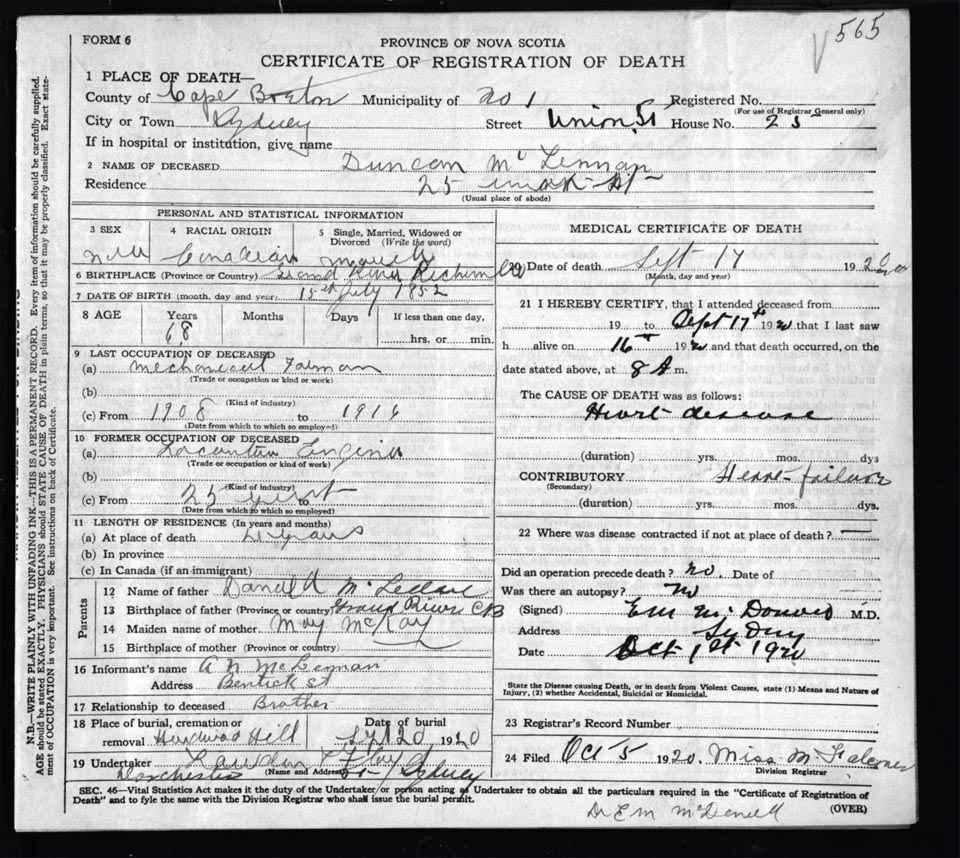 565
FORM 6
PROVINCE OF NOVA SCOTIA
CERTIFICATE OF REGISTRATION OF DEATH
1 PLACE OF DEATH—
County of Cape Breton Municipality of No 1 Registered No.
(For use of Registrar General only)
City or Town Sydney Street Union St House No. 25
If in hospital or institution, give name
2 NAME OF DECEASED Duncan Mc Lennan
Residence 25 Union St
(Usual place of abode)
PERSONAL AND STATISTICAL INFORMATION
3 SEX 4 RACIAL ORIGIN 5 Single, Married, Widowed or Divorced (Write the word)
Canadian
6 BIRTHPLACE (Province or Country) Grand River Richmond
7 DATE OF BIRTH (month, day and year) 15 July 1852
8 AGE Years Months Days If less than one day,
68 hrs. or min.
9 LAST OCCUPATION OF DECEASED
(a) Mechanical
(Trade or occupation or kind or work)
(b)
(Kind of industry)
(c) From 1908 to 1916
(Date from which to which so employed)
10 FORMER OCCUPATION OF DECEASED
(a)
(Trade or occupation or kind of work)
(b)
(Kind of industry)
(c) From 25 years to
(Date from which to which so employed)
11 LENGTH OF RESIDENCE (In years and months)
(a) At place of death years
(b) In province
(c) In Canada (if an immigrant)
Parents
12 Name of father Donald Mc
13 Birthplace of father (Province or country) Grand River CB
14 Maiden name of mother May McKay
15 Birthplace of mother (Province or country)
16 Informant's name A N McLennan
Address Bentick St
17 Relationship to deceased Brother
18 Place of burial, cremation or removal Hardwood Hill Date of burial Sept 20 1920
19 Undertaker
(Name and Address)
Dorchester St Sydney
MEDICAL CERTIFICATE OF DEATH
20 Date of death Sept 17 1920
(Month, day and year)
21 I HEREBY CERTIFY, that I attended deceased from
19 to Sept 17th 1920 that I last saw
h alive on 16th 1920 and that death occurred, on the
date stated above, at 8 A m.
The CAUSE OF DEATH was as follows:
Heart disease
(duration) yrs. mos. dys
CONTRIBUTORY Heart failure
(Secondary)
(duration) yrs. mos. dys.
22 Where was disease contracted if not at place of death?
Did an operation precede death? No. Date of
Was there an autopsy? No
(Signed) E M McDonald M.D.
Address Sydney
Date Oct 1st 1920
State the Disease causing Death, or in death from Violent Causes, state (1) Means and Nature of
Injury, (2) whether Accidental, Suicidal or Homicidal.
23 Registrar's Record Number
24 Filed Oct 5 1920. Miss M Falconer
Division Registrar
SEC. 46—Vital Statistics Act makes it the duty of the Undertaker or person acting as Undertaker to obtain all the particulars required in the "Certificate of Registration of
Death" and to fyle the same with the Division Registrar who shall issue the burial permit.
(OVER)
Dr E M McDonald
N.B.—WRITE PLAINLY WITH UNFADING INK—THIS IS A PERMANENT RECORD. Every item of information should be carefully supplied.
AGE should be stated EXACTLY. PHYSICIANS should STATE CAUSE OF DEATH in plain terms, so that it may be properly classified. Exact state-
ment of OCCUPATION is very important. See instructions on back of Certificate.